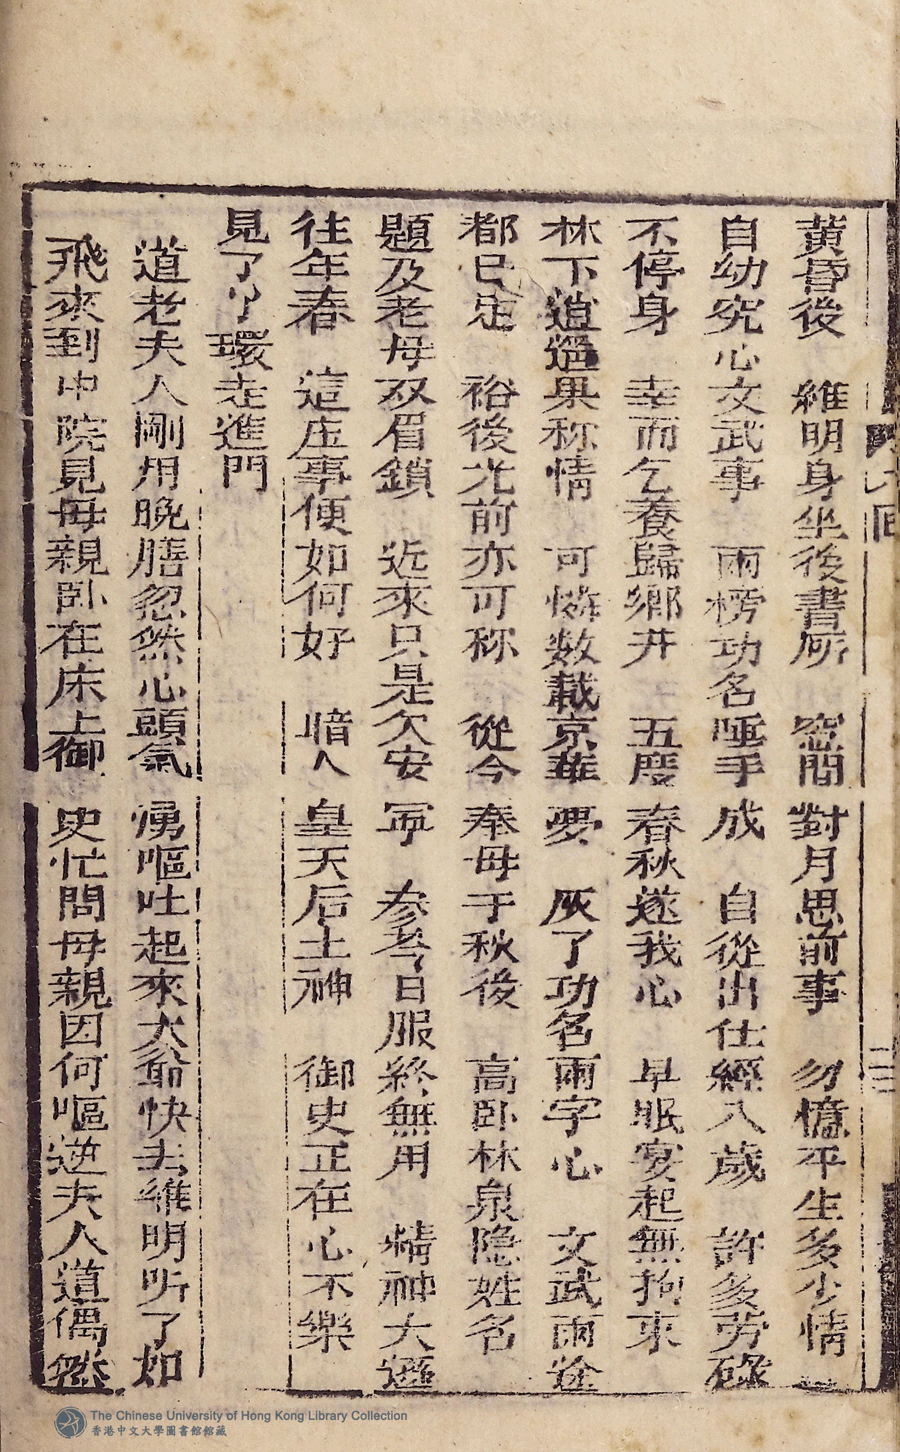 黄昏後　維明身坐後書𠩄　窓間對月思前事　勿憶平生多少情
自幼究心文武事　兩榜功名唾手成　自從出仕經入歲　許多劳碌
不停身　幸而乞養歸鄉井　五度春秋遂我心　早眠宴起無拘束
林下逍遥果称情　可憐数載京華夢　灰了功名兩字心　文武兩途
都已足　裕後光前亦可称　從今奉母于秋後　高卧林泉隐姓名
題及老母双眉鎖　近來只是欠安寕　参苓今日服終無用　精神大遜
往年春　這庄事便如何好　暗人皇天后土神　御史正在心不樂
見了丫環走進門
道老夫人剛用晚膳忽然心頭氣湧嘔吐起來大爺快去維明听了如
飛來到中院見母親卧在床上御史忙問母親因何嘔逆夫人道偶然
六回
The Chinese University of Hong Kong Library Collection
香港中文大學圖書館館藏